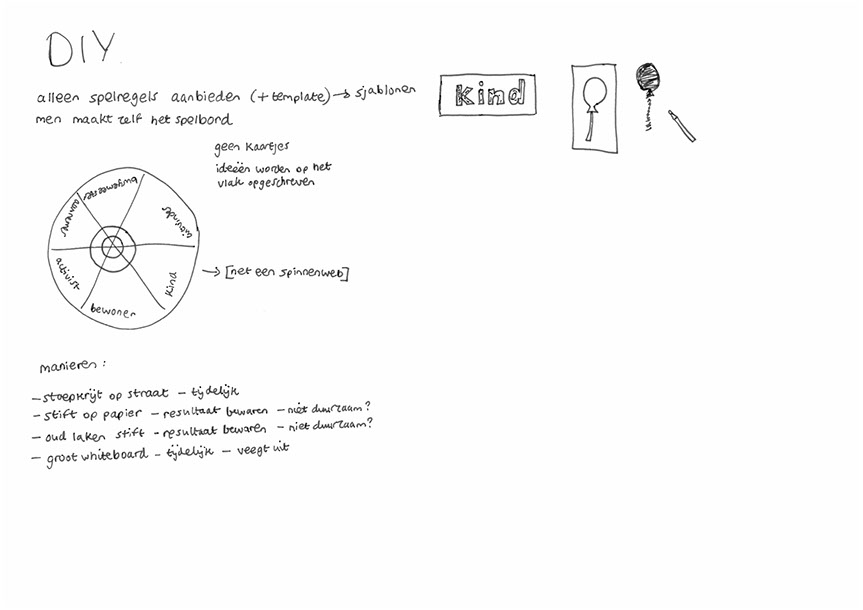 DIY
alleen spelregels aanbieden (+template) → sjablonen
men maakt zelf het spelbord
Kind
geen kaartjes
ideeën worden op het
vlak opgeschreven
burgemeester
aannemer
activist
bewoner
kind
→ [net een spinnenweb]
manieren:
- stoepkrijt op straat - tijdelijk
- stift op papier - resultaat bewaren - niet duurzaam?
- oud laken stift - resultaat bewaren - niet duurzaam?
- groot whiteboard - tijdelijk - veegt uit